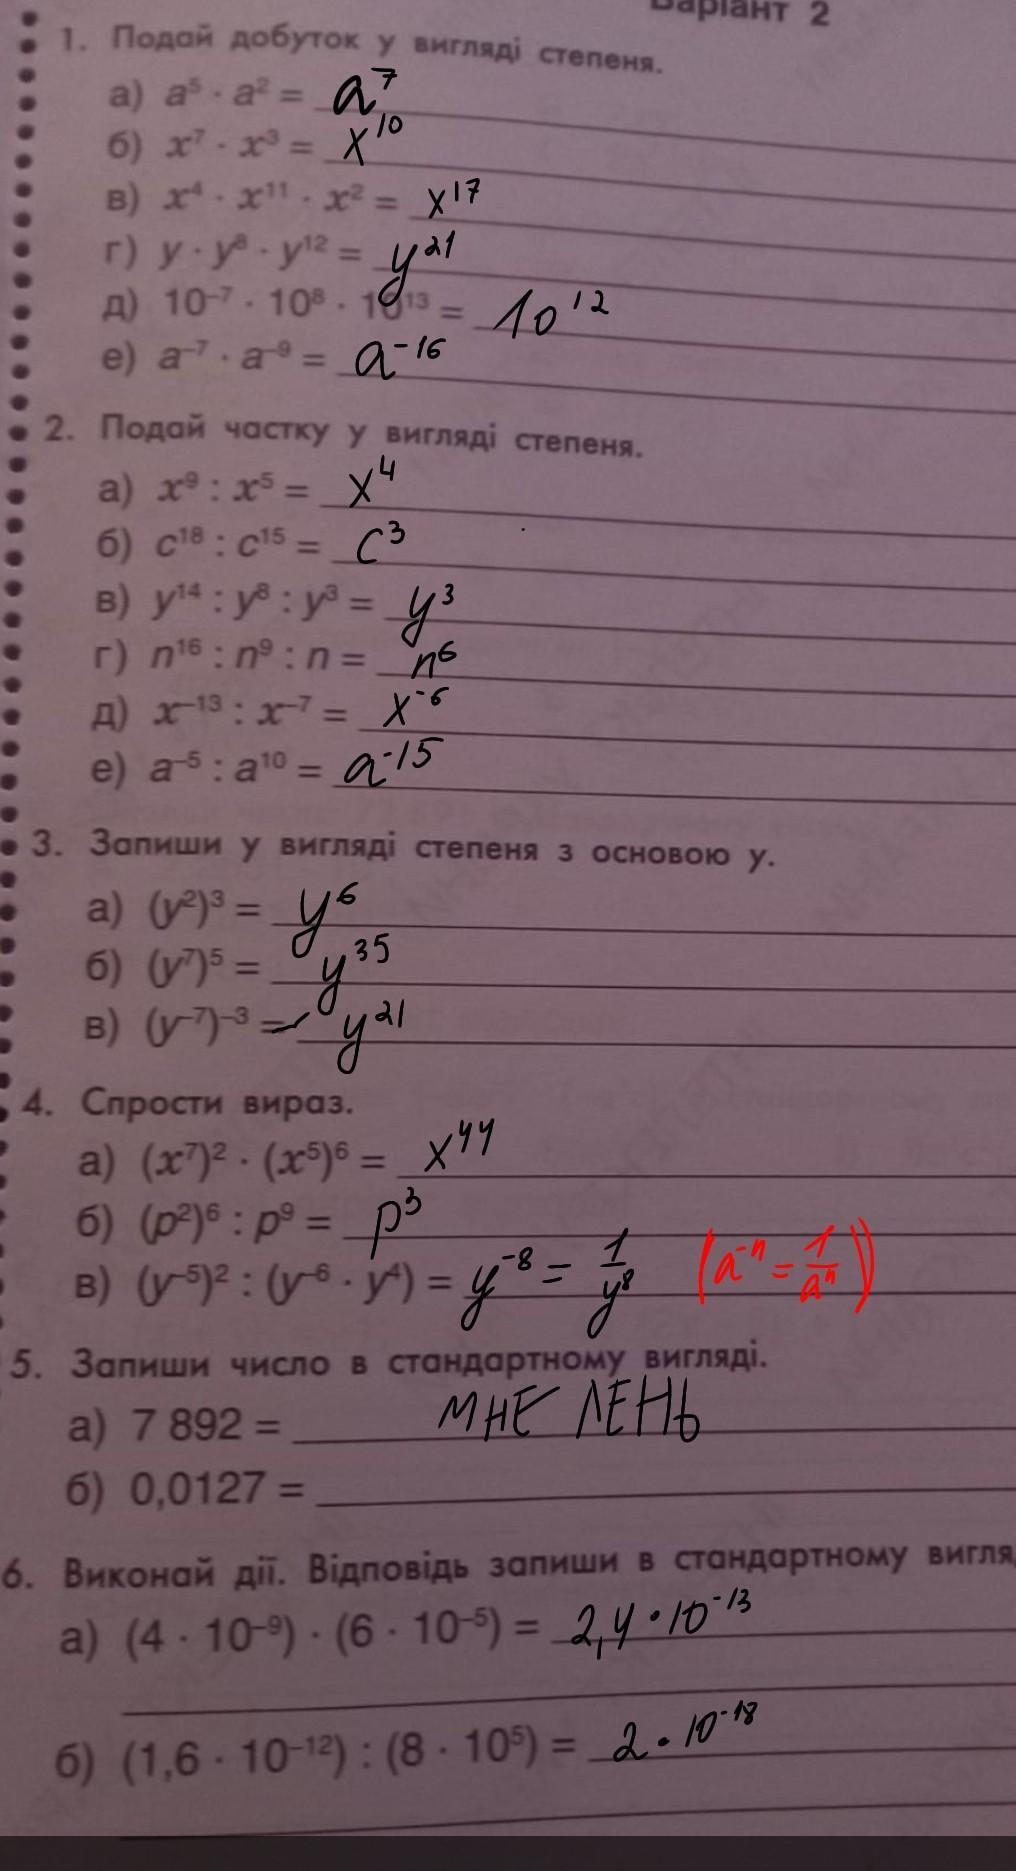 Варіант 2
1. Подай добуток у вигляді степеня.
а) a⁵ · a² = a⁷
б) x⁷ · x³ = x¹⁰
в) x⁴ · x¹¹ · x² = x¹⁷
г) y · y⁸ · y¹² = y²¹
д) 10⁻⁷ · 10⁸ · 10¹³ = 10¹²
е) a⁻⁷ · a⁻⁹ = a⁻¹⁶
2. Подай частку у вигляді степеня.
а) x⁹ : x⁵ = x⁴
б) c¹⁸ : c¹⁵ = c³
в) y¹⁴ : y⁸ : y³ = y³
г) n¹⁶ : n⁹ : n = n⁶
д) x⁻¹³ : x⁻⁷ = x⁻⁶
е) a⁻⁵ : a¹⁰ = a⁻¹⁵
3. Запиши у вигляді степеня з основою y.
а) (y²)³ = y⁶
б) (y⁷)⁵ = y³⁵
в) (y⁻⁷)⁻³ = y²¹
4. Спрости вираз.
а) (x⁷)² · (x⁵)⁶ = x⁴⁴
б) (p²)⁶ : p⁹ = p³
в) (y⁻⁵)² : (y⁻⁶ · y⁴) = y⁻⁸ = 1/y⁸ (a⁻ⁿ = 1/aⁿ)
5. Запиши число в стандартному вигляді.
а) 7 892 = МНЕ ЛЕНЬ
б) 0,0127 =
6. Виконай дії. Відповідь запиши в стандартному вигля
а) (4 · 10⁻⁹) · (6 · 10⁻⁵) = 2,4 · 10⁻¹³
б) (1,6 · 10⁻¹²) : (8 · 10⁵) = 2 · 10⁻¹⁸